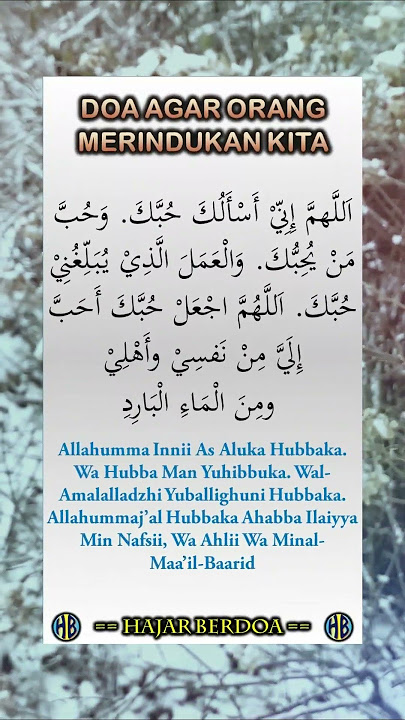 DOA AGAR ORANG
MERINDUKAN KITA
اَللَّهمَّ إِنِيّْ أَسْأَلُكَ حُبَّكَ. وَحُبَّ
مَنْ يُحِبُّكَ. وَالْعَمَلَ الَّذِيْ يُبَلِّغُنِيْ
حُبَّكَ. اَللَّهُمَّ اجْعَلْ حُبَّكَ أَحَبَّ
إِلَيَّ مِنْ نَفسِيْ وأَهْلِيْ
ومِنَ الْمَاءِ الْبَارِدِ
Allahumma Innii As Aluka Hubbaka.
Wa Hubba Man Yuhibbuka. Wal-
Amalalladzhi Yuballighuni Hubbaka.
Allahummaj’al Hubbaka Ahabba Ilaiyya
Min Nafsii, Wa Ahlii Wa Minal-
Maa’il-Baarid
HB == HAJAR BERDOA == HB